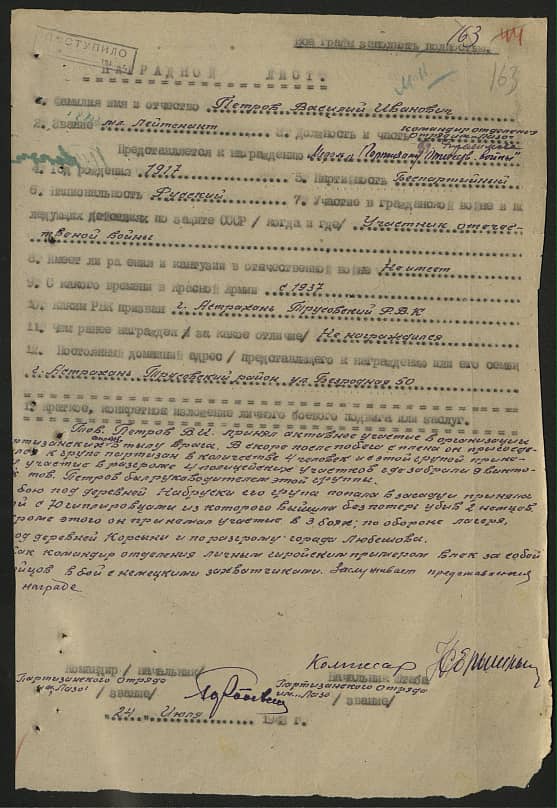 163
ПОСТУПИЛО
Все графы заполнять полностью.
163
НАГРАДНОЙ ЛИСТ.
1. Фамилия имя и отчество Петров Василий Иванович
2. Звание мл. Лейтенант 3. Должность и часть командир отделения
Представляется к награждению Медаль "Партизану Отечеств. Войны"
4. Год рождения 1917 5. Партийность Беспартийный
6. Национальность Русский 7. Участие в гражданской войне и
ледующих действиях по защите СССР / когда и где/ Участник отечес-
твеной войны
8. Имеет ли ранения и контузии в отечественной войне Не имеет
9. С какого времени в Красной армии с 1937
10. Каким РВК призван г. Астрахань Трусовский Р.В.К
11. Чем ранее награжден / за какое отличие/ Не награждался
12. Постоянный домашний адрес / представляемого к награждению или его семьи
г. Астрахань Трусовский район ул Безродная 50
1. Краткое, конкретное изложение личного боевого подвига или заслуг.
Тов. Петров В.И. принял активное участие в организации
ртизанских отряд. в тылу врага. Вскоре после побега с плена он присоеде-
лся к групе партизан в количестве 4 человек и с этой групой прини-
участие в разгроме 4 полицейских участков где забрали 9 винто-
тов. Петров был руководителем этой группы.
бою под деревней Набруски его група попала в засаду и приняла
й с Югиппировцами из которого вышли без потерь убив 2 немцев
роме этого он принемал участие в 3 боях; по обороне лагеря,
од деревней Корсыни и по разгрому города Любешова.
Как командир отделения личным геройским примером влек за собой
йцов в бой с немецкими захватчиками. Заслуживает представления
награде
Комиссар
Командир / Начальник/ Начальник штаба
Партизанского Отряда Партизанского Отрядо
им. Лазо им. Лазо
/ звание/ / звание/
"24" Июля 1943 г.